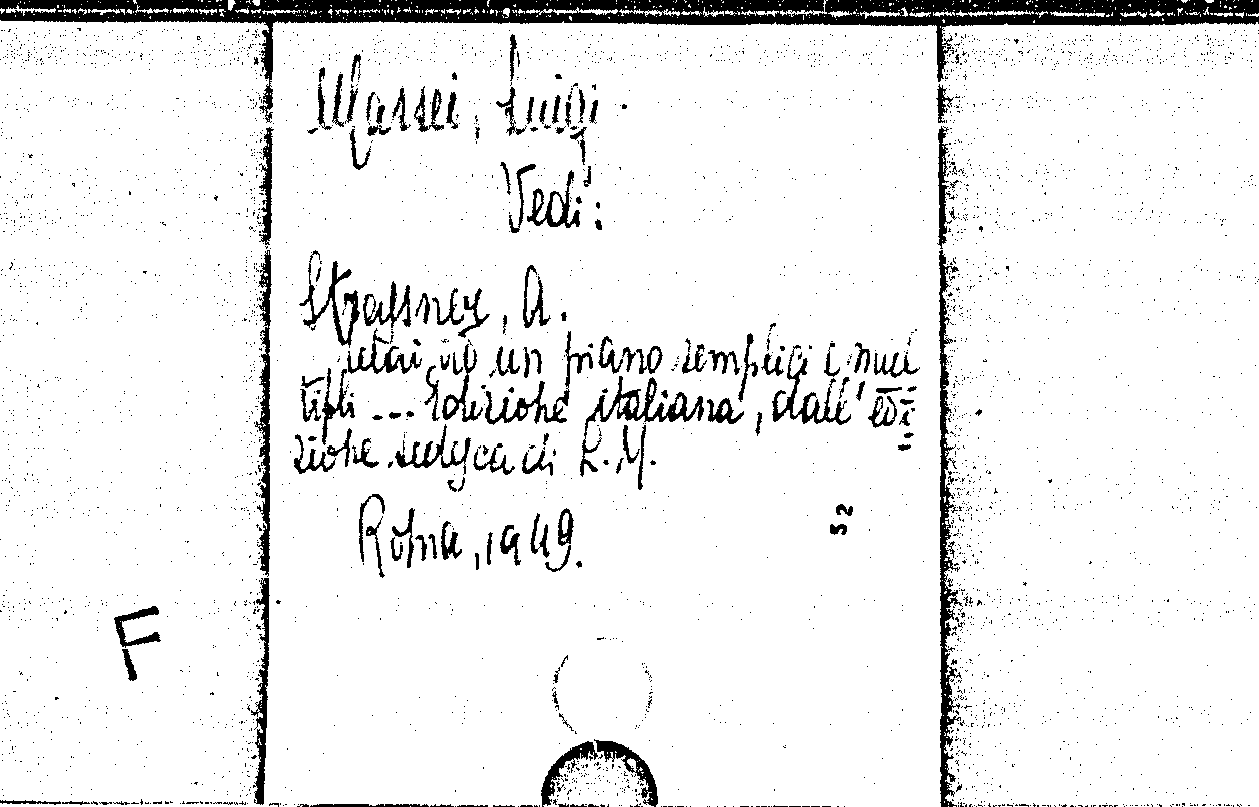 Massei, Luigi.
Vedi:
Strassner, A.
Telai ad un piano semplici e mul
tipli ... Edizione italiana, dall' edi=
zione tedesca di L. M.
Roma, 1949.
52
F